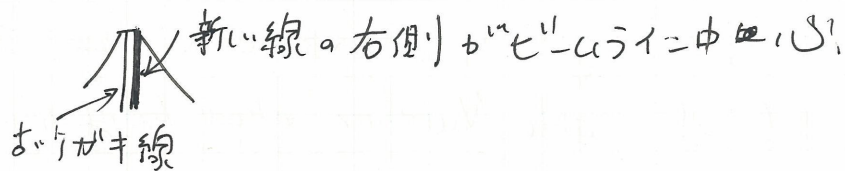 新しい線の右側がビームライン中心
けがキ線